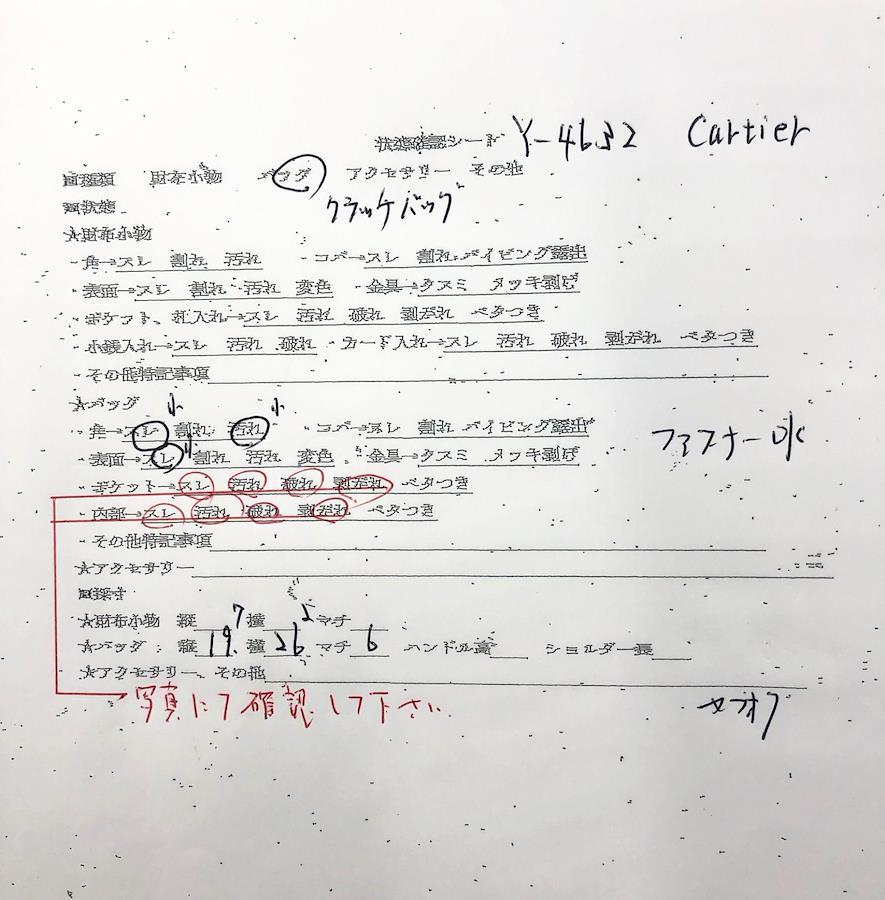 状態確認シート Y-4632 Cartier
■種類 財布小物 バッグ アクセサリー その他
クラッチバッグ
■状態
★財布小物
・角→スレ 割れ 汚れ ・コバ→スレ 割れ パイピング露出
・表面→スレ 割れ 汚れ 変色 ・金具→クスミ メッキ剥げ
・ポケット、札入れ→スレ 汚れ 破れ 剥がれ ベタつき
・小銭入れ→スレ 汚れ 破れ ・カード入れ→スレ 汚れ 破れ 剥がれ ベタつき
・その他特記事項
★バッグ 小 小
・角→スレ 割れ 汚れ ・コバ→スレ 割れ パイピング露出
小 ファスナー
・表面→スレ 割れ 汚れ 変色 ・金具→クスミ メッキ剥げ
・ポケット→スレ 汚れ 破れ 剥がれ ベタつき
・内部→スレ 汚れ 破れ 剥がれ ベタつき
・その他特記事項
★アクセサリー
■採寸
★財布小物 縦 横 マチ
★バッグ: 縦 19. 横 26 マチ 6 ハンドル高 ショルダー長
★アクセサリー、その他
写真にて確認して下さい ヤフオク